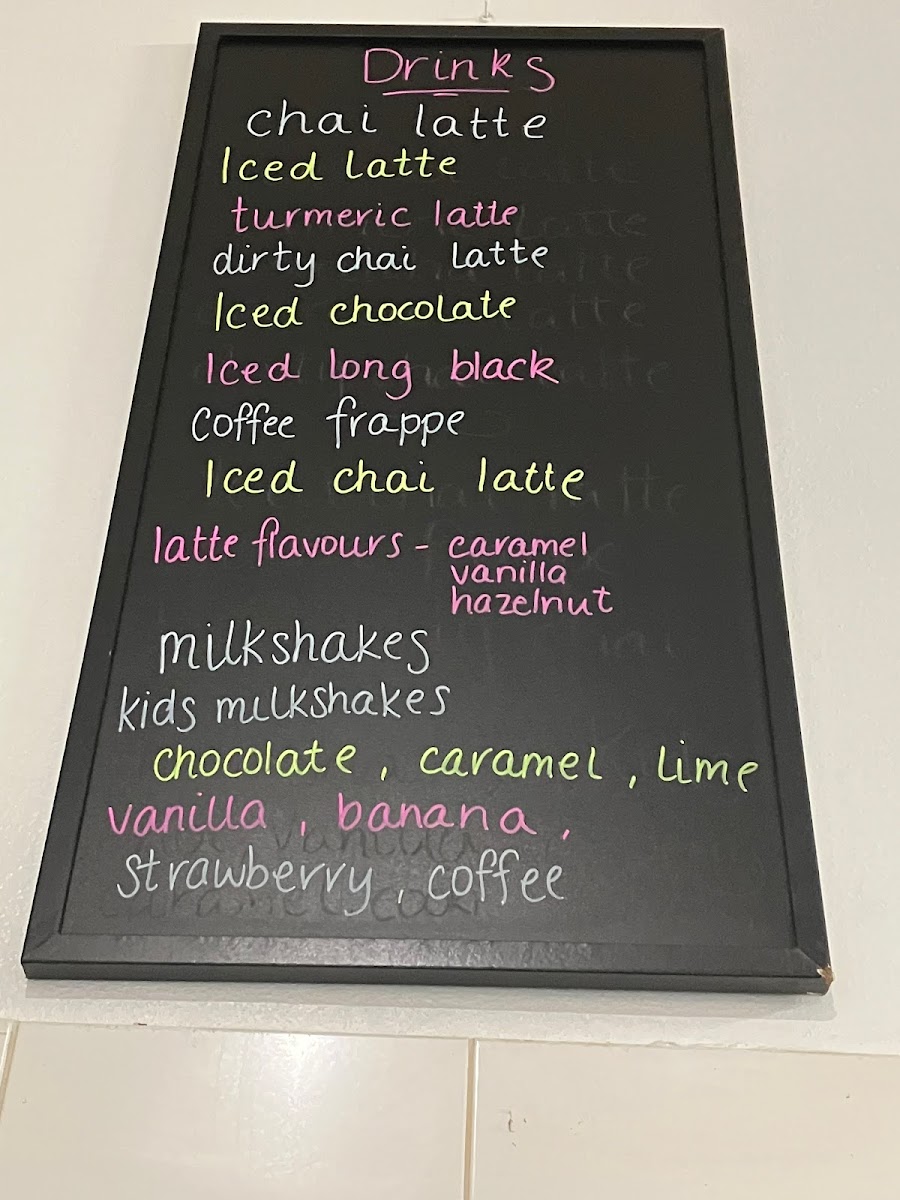 Drinks
chai latte
Iced latte
turmeric latte
dirty chai latte
Iced chocolate
Iced long black
Coffee frappe
Iced chai latte
latte flavours - caramel
vanilla
hazelnut
milkshakes
kids milkshakes
chocolate , caramel , Lime
vanilla , banana ,
strawberry , coffee